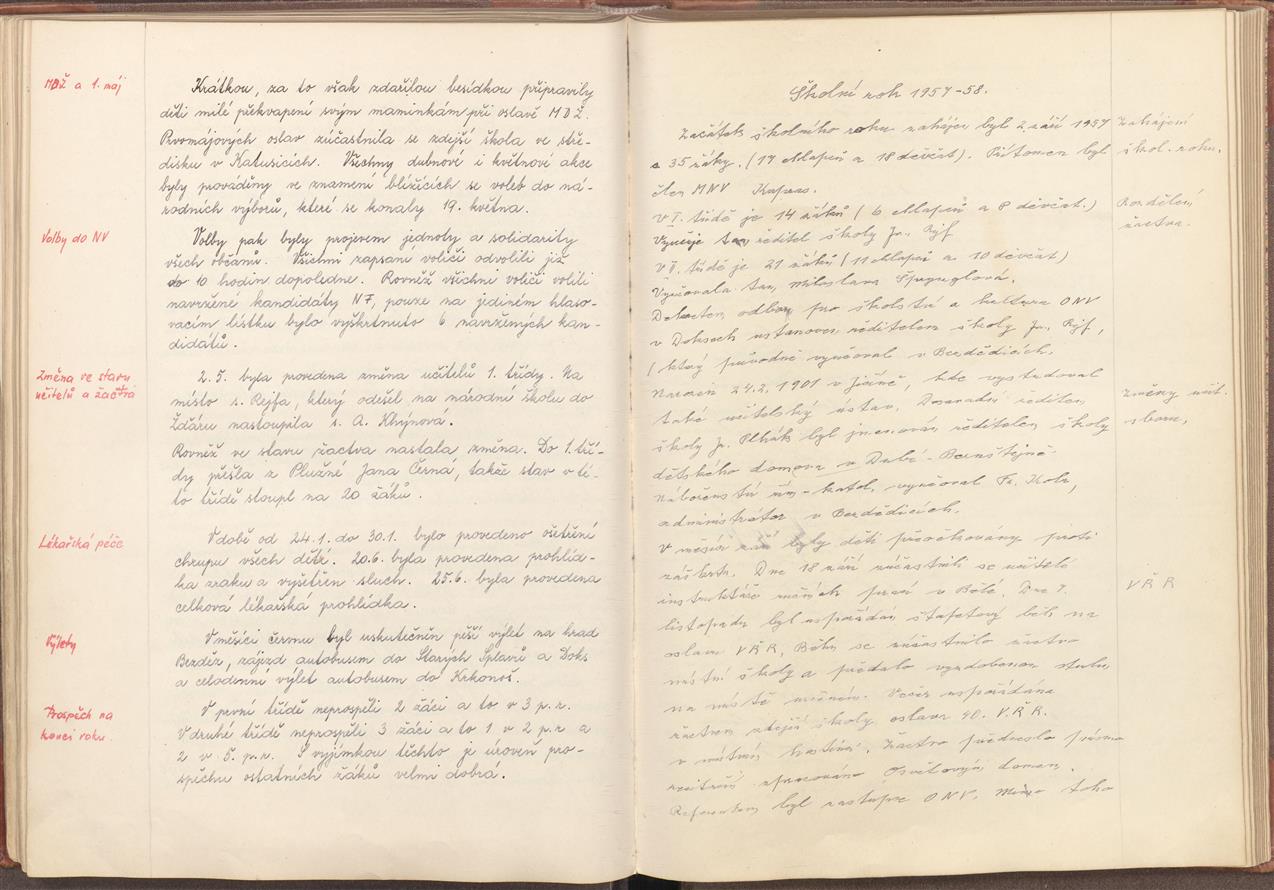 MDŽ a 1. máj
Krátkou, za to však zdařilou besídkou připravily
děti milé překvapení svým maminkám při oslavě MDŽ.
Prvomájových oslav zúčastnila se zdejší škola ve stře-
disku v Katusicích. Všechny dubnové i květnové akce
byly prováděny ve znamení blížících se voleb do ná-
rodních výborů, které se konaly 19. května.
Volby do NV
Volby pak byly projevem jednoty a solidarity
všech občanů. Všichni zapsaní voliči odvolili již
do 10 hodin dopoledne. Rovněž všichni voliči volili
navržené kandidáty NF, pouze na jediném hlaso-
vacím lístku bylo vyškrtnuto 6 navržených kan-
didátů.
Změna ve stavu
učitelů a žactva
2. 5. byla provedena změna učitelů 1. třídy. Na
místo s. Rejfa, který odešel na národní školu do
Žďáru nastoupila s. A. Khýnová.
Rovněž ve stavu žactva nastala změna. Do 1. tří-
dy přešla z Plužné Jana Černá, takže stav v té-
to třídě stoupl na 20 žáků.
Lékařská péče
V době od 24. 1. do 30. 1. bylo provedeno ošetření
chrupu všech dětí. 20. 6. byla provedena prohlíd-
ka zraku a vyšetřen sluch. 25. 6. byla provedena
celková lékařská prohlídka.
Výlety
V měsíci červnu byl uskutečněn pěší výlet na hrad
Bezděz, zájezd autobusem do Starých Splavů a Doks
a celodenní výlet autobusem do Krkonoš.
Prospěch na
konci roku.
V první třídě neprospěli 2 žáci a to v 3 p. r.
V druhé třídě neprospěli 3 žáci a to 1 v 2 p. r. a
2 v 5. p. r. S vyjímkou těchto je úroveň pro-
spěchu ostatních žáků velmi dobrá.
Školní rok 1957-58.
Začátek školního roku zahájen byl 2. září 1957
Zahájení
škol. roku.
s 35 žáky. (17 chlapců a 18 děvčat). Přítomen byl
člen MNV Kapras.
V I. třídě je 14 žáků (6 chlapců a 8 děvčat.)
Rozdělení
žactva.
Vyučuje tam ředitel školy Jr. Rýf.
V II. třídě je 21 žáků (11 chlapců a 10 děvčat)
Vyučovala tam Miloslava Špynglová.
Dekretem odboru pro školství a kulturu ONV
v Doksech ustanoven ředitelem školy Jr. Rýf,
(který původně vyučoval v Bezdědicích.
Narozen 24. 2. 1901 v Jičíně, kde vystudoval
Změny učit.
sboru,
také učitelský ústav. Dosavadní ředitel
školy Jr. Plhák byl jmenován ředitelem školy
dětského domova v Dubé-Bernštejně.
Náboženství řím-katol. vyučoval Fr. Kole,
administrátor v Bezdědicích.
V měsíci září byly děti přeočkovány proti
záškrtu. Dne 18 září zúčastnili se učitelé
instruktáže ručních prací v Bělé. Dne 7.
VŘR
listopadu byl uspořádán štafetový běh na
oslavu VŘR. Běhu se zúčastnilo žactvo
místní školy a předalo vyzdobenou stuhu
na místě určeném. Večer uspořádána
žactvem zdejší školy oslava 40. V. Ř. R.
v místním hostinci. Žactvo předneslo pásmo
recitací zpracováno Osvětovým domem.
Referentem byl zástupce ONV. Mimo toho